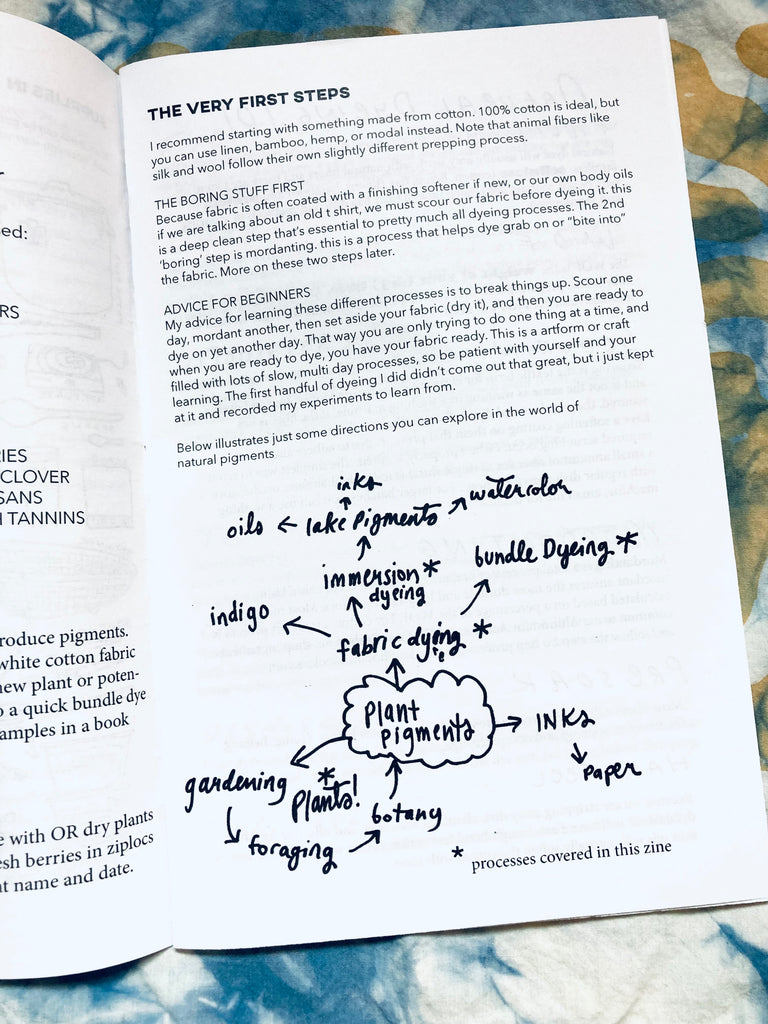 ed:
RS
RIES
CLOVER
SANS
TANNINS
roduce pigments.
white cotton fabric
new plant or poten-
o a quick bundle dye
amples in a book
e with OR dry plants
esh berries in ziplocs
nt name and date.
THE VERY FIRST STEPS
I recommend starting with something made from cotton. 100% cotton is ideal, but
you can use linen, bamboo, hemp, or modal instead. Note that animal fibers like
silk and wool follow their own slightly different prepping process.
THE BORING STUFF FIRST
Because fabric is often coated with a finishing softener if new, or our own body oils
if we are talking about an old t shirt, we must scour our fabric before dyeing it. this
is a deep clean step that's essential to pretty much all dyeing processes. The 2nd
'boring' step is mordanting. this is a process that helps dye grab on or "bite into"
the fabric. More on these two steps later.
ADVICE FOR BEGINNERS
My advice for learning these different processes is to break things up. Scour one
day, mordant another, then set aside your fabric (dry it), and then you are ready to
dye on yet another day. That way you are only trying to do one thing at a time, and
when you are ready to dye, you have your fabric ready. This is a artform or craft
filled with lots of slow, multi day processes, so be patient with yourself and your
learning. The first handful of dyeing I did didn't come out that great, but i just kept
at it and recorded my experiments to learn from.
Below illustrates just some directions you can explore in the world of
natural pigments
inks
oils ← lake pigments → watercolor
immersion * dyeing
bundle Dyeing *
indigo
fabric dying *
e
Plant pigments
→ INKs
Paper
gardening
* Plants!
botany
foraging
* processes covered in this zine